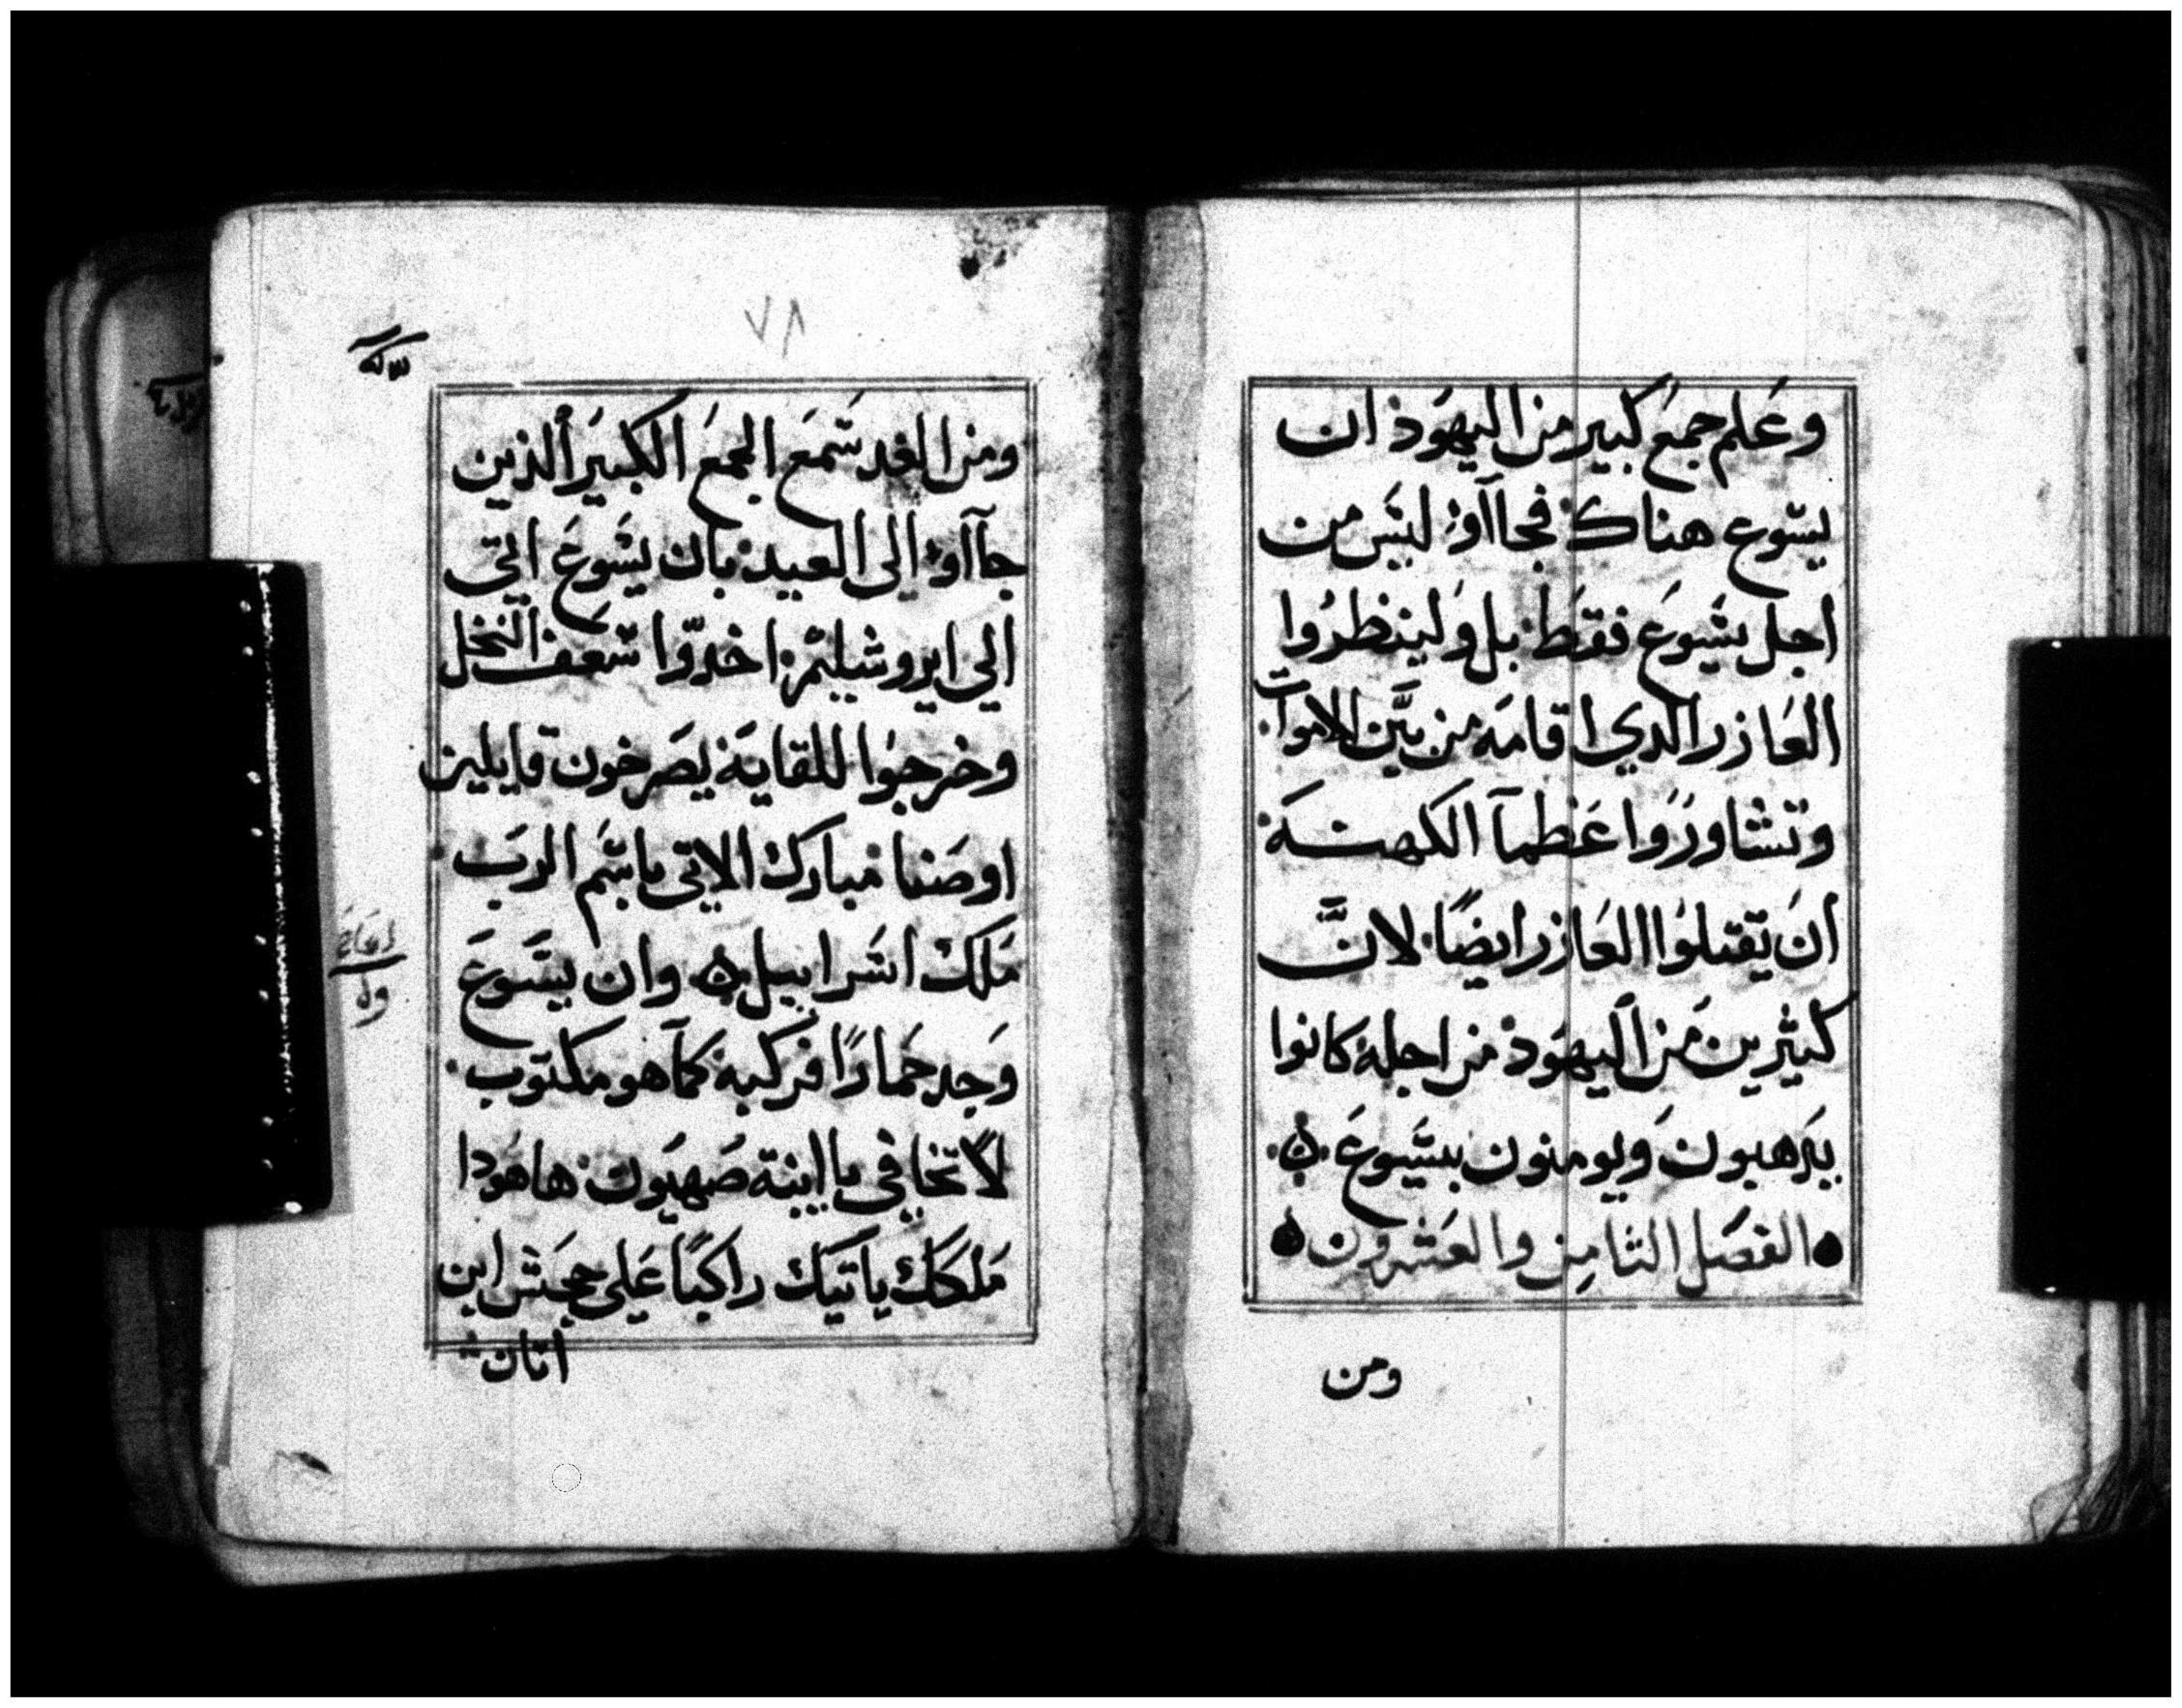 وعَلم جمعَ كبير من اليهوَد ان
يسَوع هناك فجاآوْ ليسَ من
اجل يسَوعَ فقط بل وَلينظروا
العَازر الدي اقامَه من بيَّن الاموات
وتشاورَوا عَظمآ الكهنـَة
انَ يَقتلوُا العَازر ايضًا لانَّ
كثيرين مَن اليهوَد من اجله كانوا
يذَهبون وَيومنون بيسَوعَ
الفصَل الثامِن والعشرون
ومن
٧٨
ومن الغد سَمعَ الجمعَ الكبيَر الذين
جآاوْ الي العيد بان يسَوعَ اتي
الي ايروشيليم اخدوّا سَعف النخل
وخرجوُا للقايَه يصَرخون قايلين
اوصَنا مَبارك الاتي باسَم الربَ
مَلك اسَراييل وان يسَوعَ
وَجد حَمارًا فركبه كمآ هو مكتوب
لا تخافي يا ابنة صَهيَون هاهَودا
مَلككَ ياتيَك راكبًا عَلي جحَش ابن
اتان